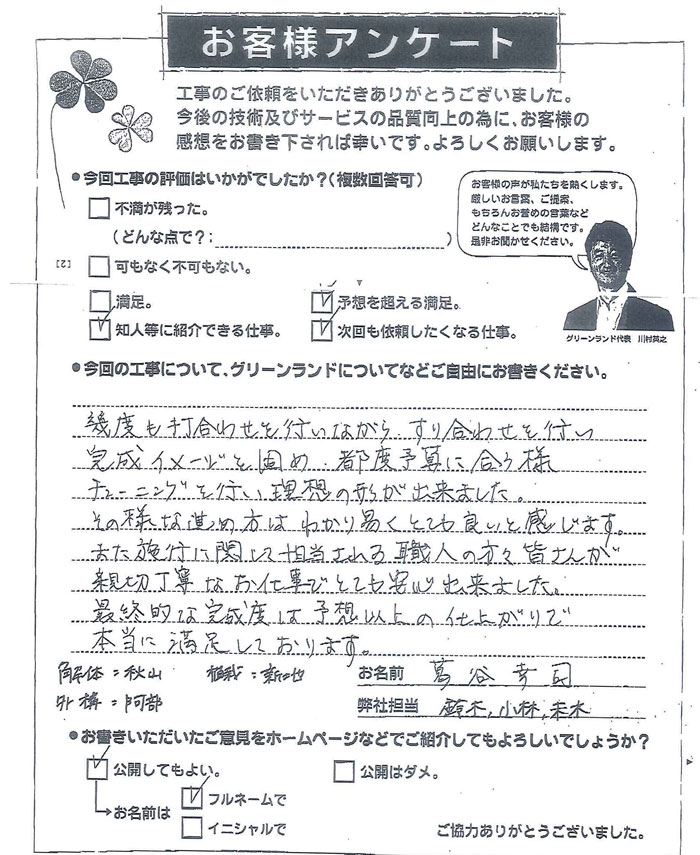 お客様アンケート
工事のご依頼をいただきありがとうございました。
今後の技術及びサービスの品質向上の為に、お客様の
感想をお書き下されば幸いです。よろしくお願いします。
●今回工事の評価はいかがでしたか？（複数回答可）
お客様の声が私たちを熱くします。
厳しいお言葉、ご提案、
もちろんお誉めの言葉など
どんなことでも結構です。
是非お聞かせください。
不満が残った。
（どんな点で？：　）
[2]
可もなく不可もない。
満足。
予想を超える満足。
知人等に紹介できる仕事。
次回も依頼したくなる仕事。
グリーンランド代表　川村英之
●今回の工事について、グリーンランドについてなどご自由にお書きください。
幾度も打合わせを行いながら、すり合わせを行い
完成イメージを固め、都度予算に合う様
チューニングを行い理想の形が出来ました。
その様な進め方はわかり易くとても良いと感じます。
また施行に関して担当される職人の方々皆さんが
親切丁寧なお仕事でとても安心出来ました。
最終的な完成度は予想以上の仕上がりで
本当に満足しております。
解体：秋山　植栽：
外構：阿部
お名前　葛谷幸司
弊社担当　鈴木、小林、末木
●お書きいただいたご意見をホームページなどでご紹介してもよろしいでしょうか？
公開してもよい。
公開はダメ。
お名前は
フルネームで
イニシャルで
ご協力ありがとうございました。